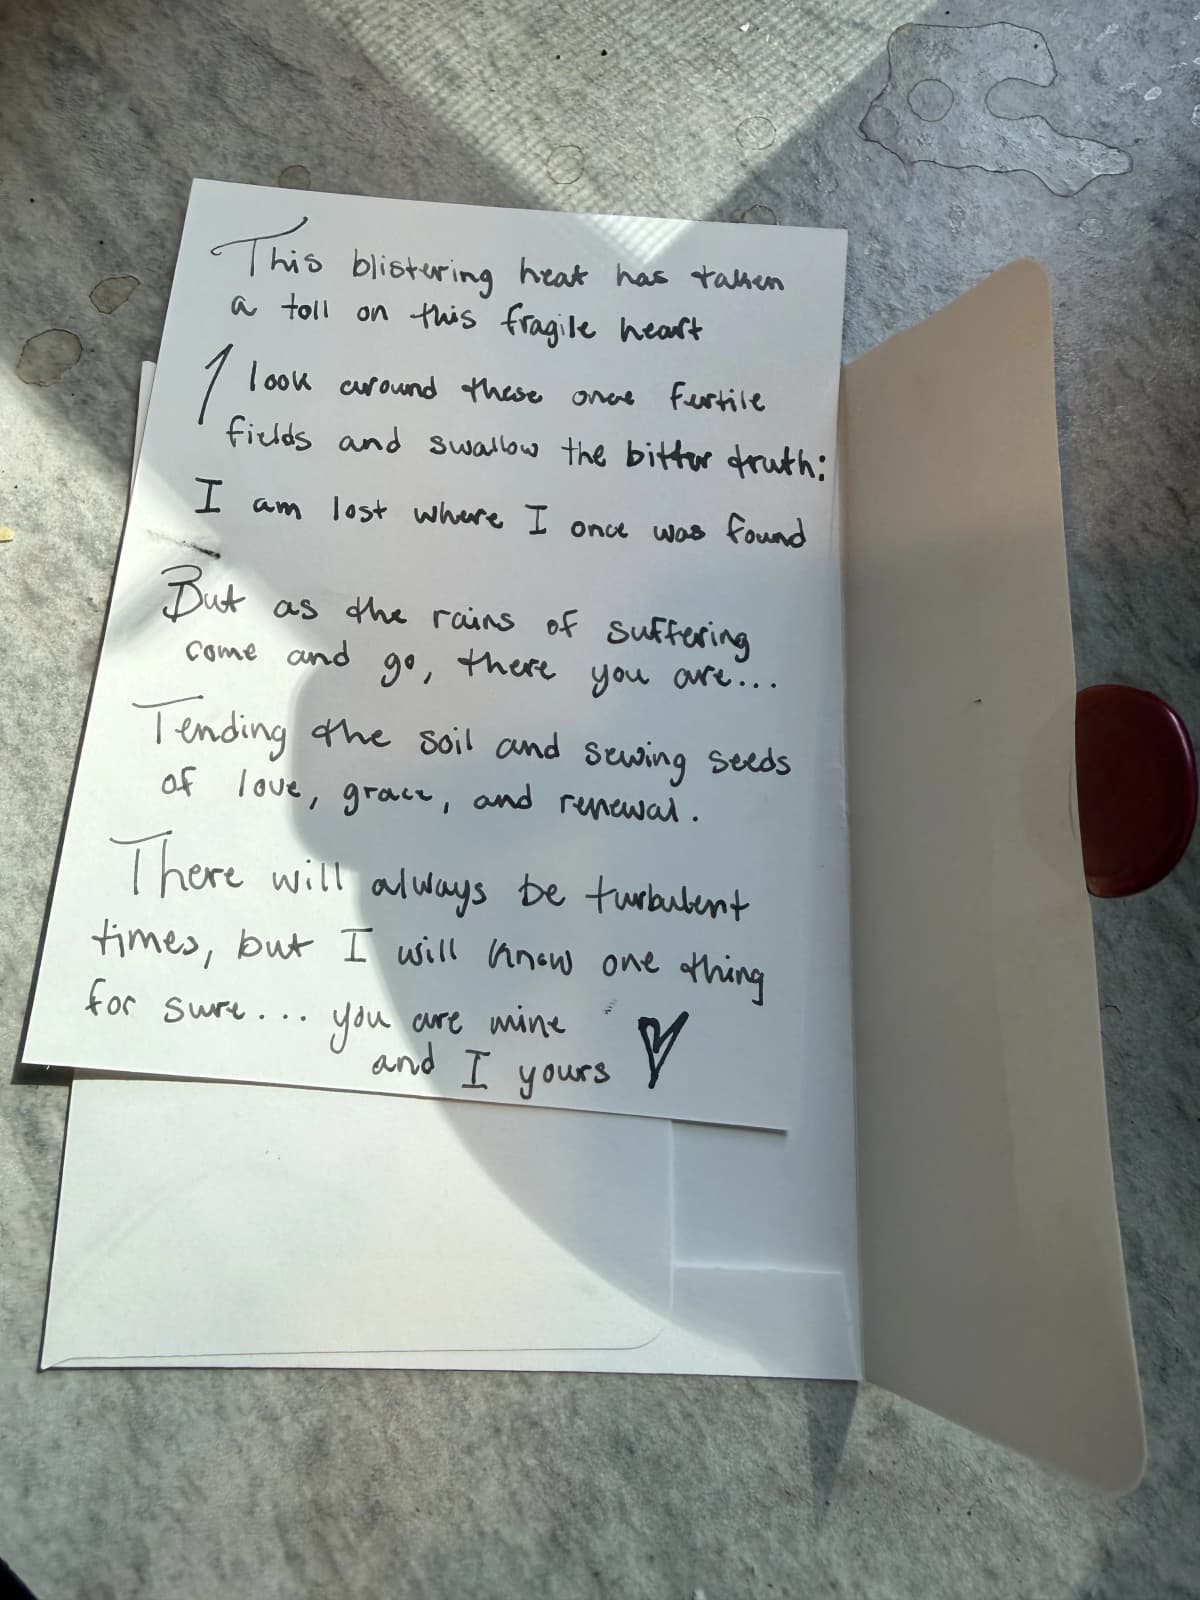 This blistering heat has taken
a toll on this fragile heart
I look around these once fertile
fields and swallow the bitter truth:
I am lost where I once was found
But as the rains of suffering
come and go, there you are...
Tending the soil and sewing seeds
of love, grace, and renewal.
There will always be turbulent
times, but I will know one thing
for sure... you are mine
and I yours